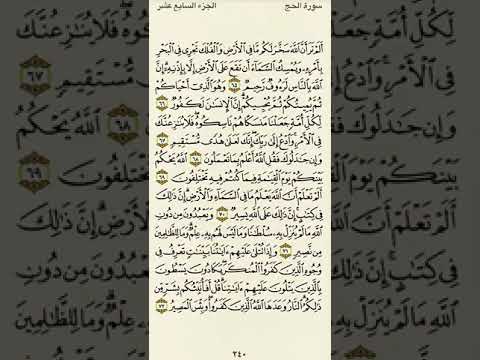 سورة الحج
الجزء السابع عشر
أَلَمْ تَرَ أَنَّ ٱللَّهَ سَخَّرَ لَكُم مَّا فِي ٱلْأَرْضِ وَٱلْفُلْكَ تَجْرِي فِي ٱلْبَحْرِ
بِأَمْرِهِۦ وَيُمْسِكُ ٱلسَّمَآءَ أَن تَقَعَ عَلَى ٱلْأَرْضِ إِلَّا بِإِذْنِهِۦٓ إِنَّ
ٱللَّهَ بِٱلنَّاسِ لَرَءُوفٌ رَّحِيمٌ ٦٥ وَهُوَ ٱلَّذِيٓ أَحْيَاكُمْ
ثُمَّ يُمِيتُكُمْ ثُمَّ يُحْيِيكُمْ إِنَّ ٱلْإِنسَٰنَ لَكَفُورٌ ٦٦
لِّكُلِّ أُمَّةٍ جَعَلْنَا مَنسَكًا هُمْ نَاسِكُوهُ فَلَا يُنَٰزِعُنَّكَ
فِي ٱلْأَمْرِ وَٱدْعُ إِلَىٰ رَبِّكَ إِنَّكَ لَعَلَىٰ هُدًى مُّسْتَقِيمٍ ٦٧
وَإِن جَٰدَلُوكَ فَقُلِ ٱللَّهُ أَعْلَمُ بِمَا تَعْمَلُونَ ٦٨ ٱللَّهُ يَحْكُمُ
بَيْنَكُمْ يَوْمَ ٱلْقِيَٰمَةِ فِيمَا كُنتُمْ فِيهِ تَخْتَلِفُونَ ٦٩
أَلَمْ تَعْلَمْ أَنَّ ٱللَّهَ يَعْلَمُ مَا فِي ٱلسَّمَآءِ وَٱلْأَرْضِ إِنَّ ذَٰلِكَ
فِي كِتَٰبٍ إِنَّ ذَٰلِكَ عَلَى ٱللَّهِ يَسِيرٌ ٧٠ وَيَعْبُدُونَ مِن دُونِ
ٱللَّهِ مَا لَمْ يُنَزِّلْ بِهِۦ سُلْطَٰنًا وَمَا لَيْسَ لَهُم بِهِۦ عِلْمٌ وَمَا لِلظَّٰلِمِينَ
مِن نَّصِيرٍ ٧١ وَإِذَا تُتْلَىٰ عَلَيْهِمْ ءَايَٰتُنَا بَيِّنَٰتٍ تَعْرِفُ فِي
وُجُوهِ ٱلَّذِينَ كَفَرُوا۟ ٱلْمُنكَرَ يَكَادُونَ يَسْطُونَ
بِٱلَّذِينَ يَتْلُونَ عَلَيْهِمْ ءَايَٰتِنَا قُلْ أَفَأُنَبِّئُكُم بِشَرٍّ مِّن
ذَٰلِكُمُ ٱلنَّارُ وَعَدَهَا ٱللَّهُ ٱلَّذِينَ كَفَرُوا۟ وَبِئْسَ ٱلْمَصِيرُ ٧٢
٣٤٠